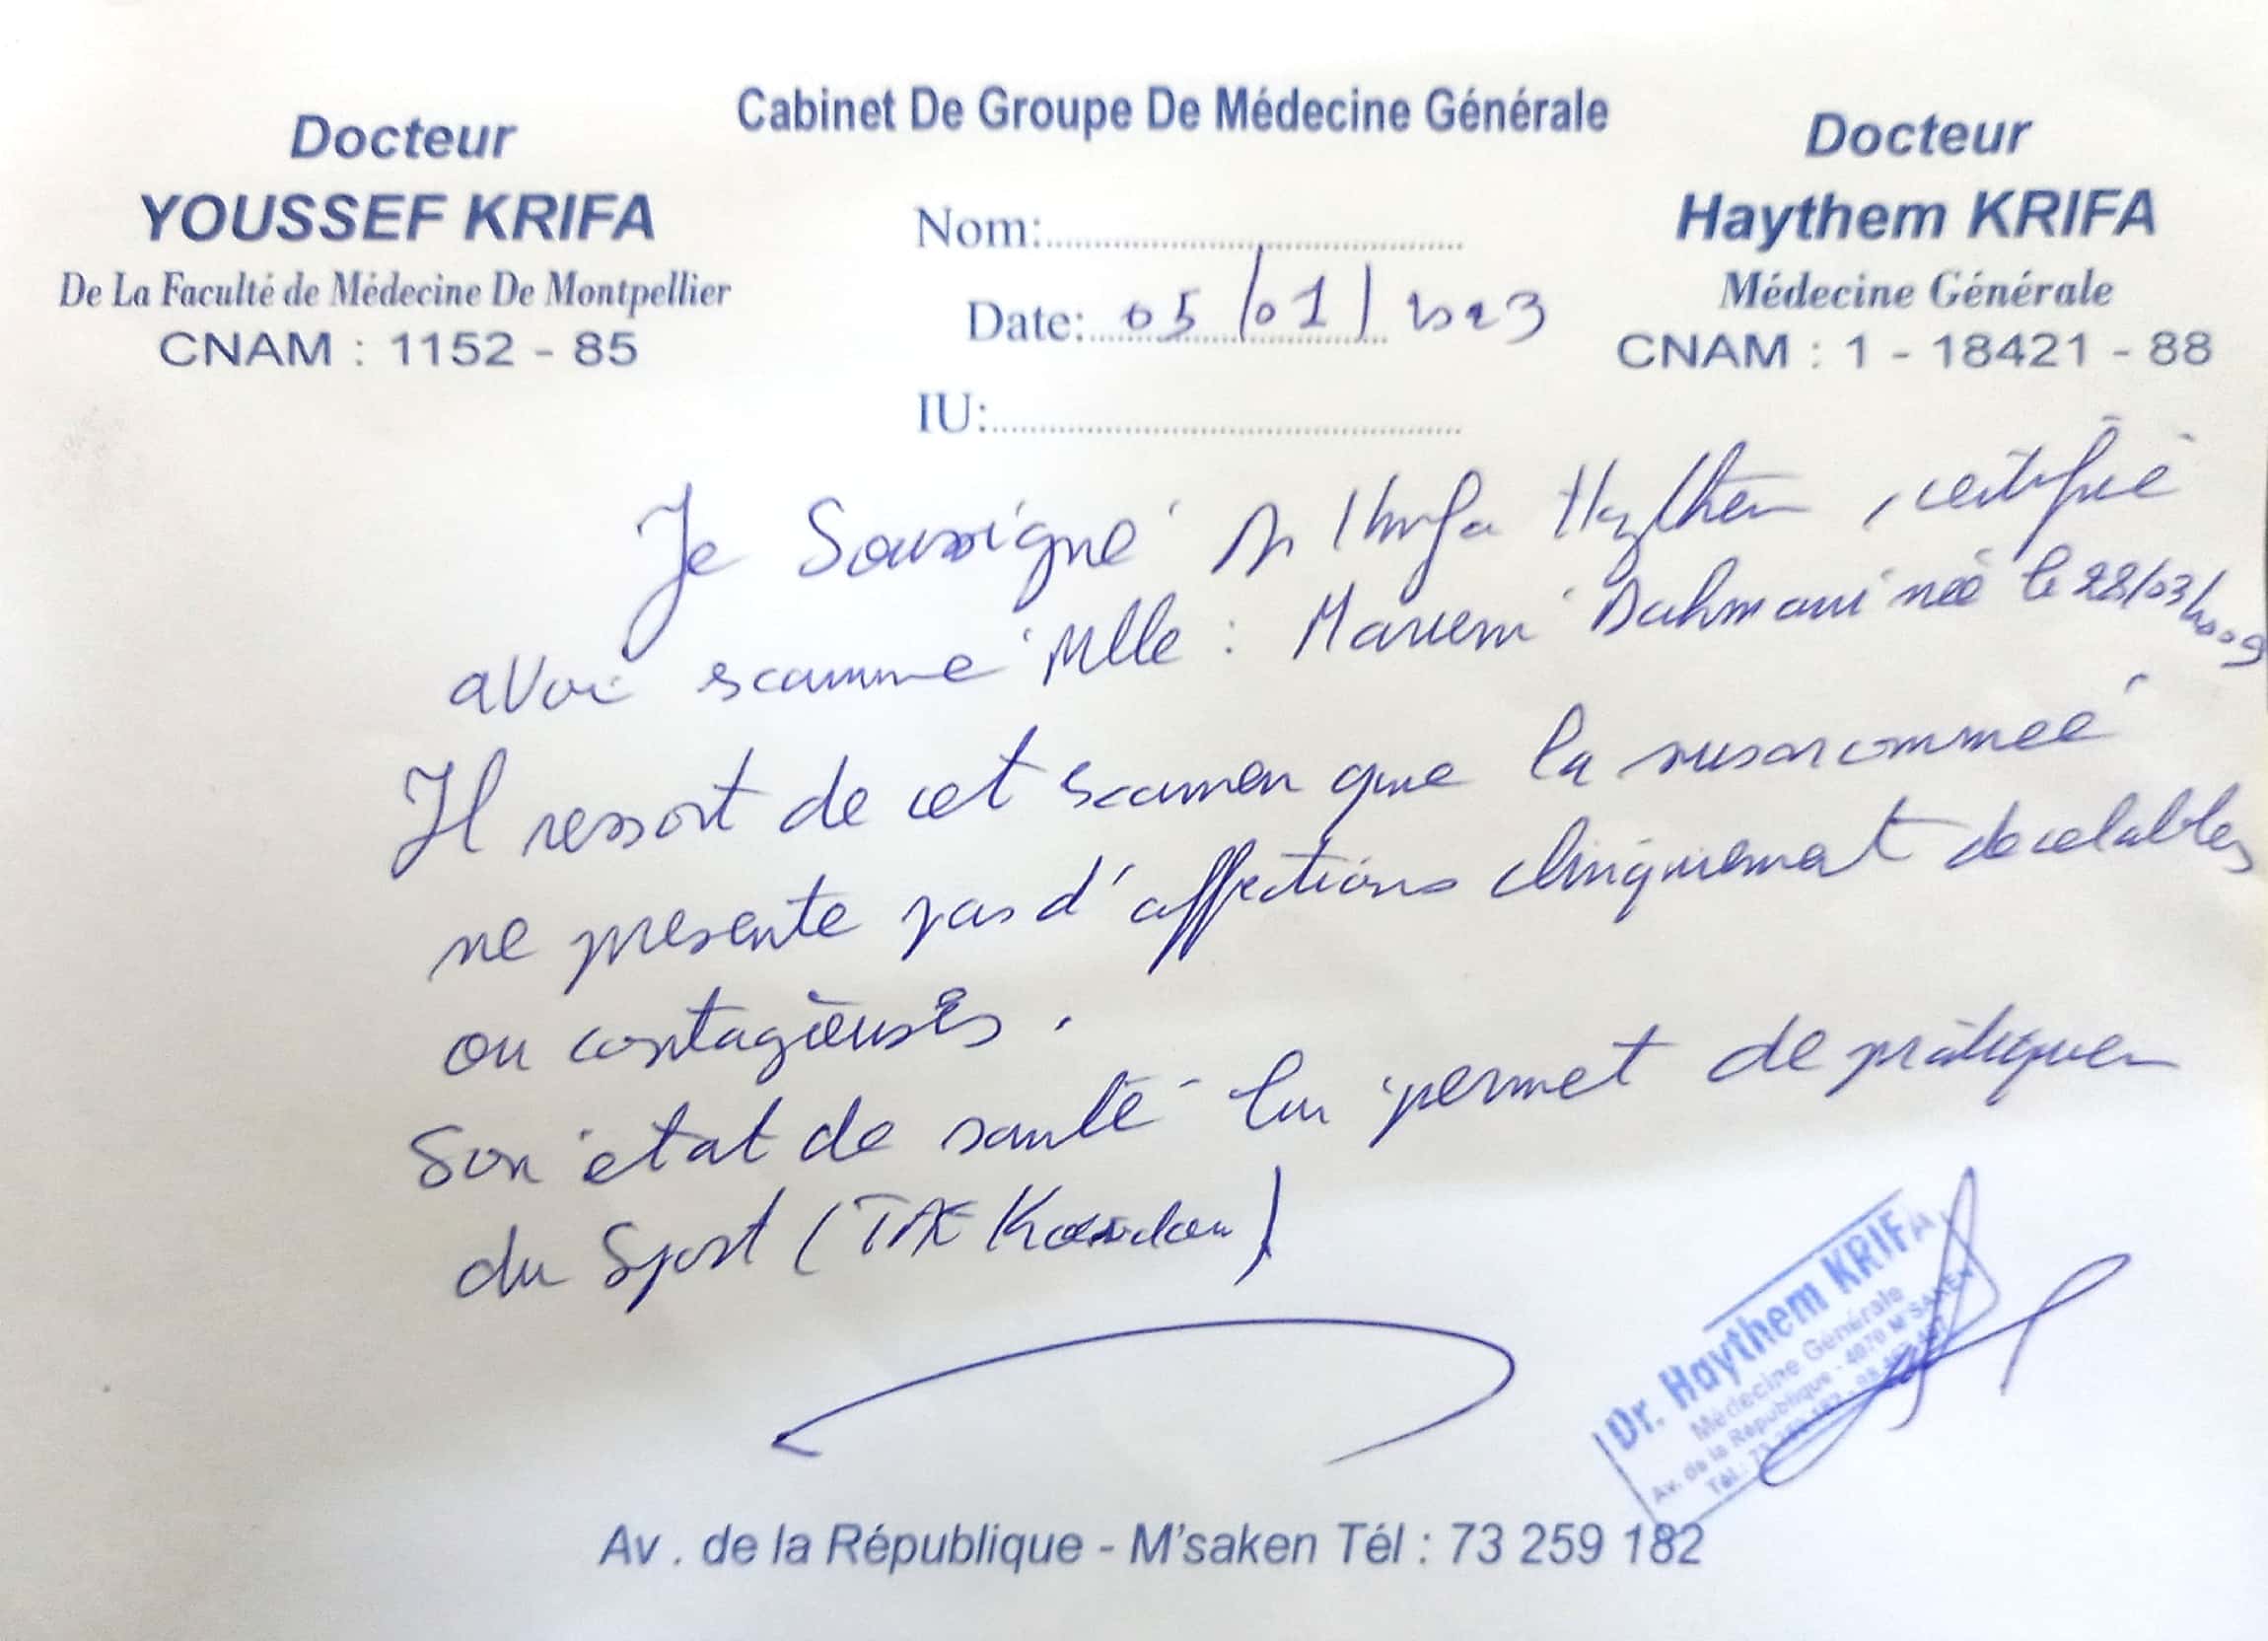 Cabinet De Groupe De Médecine Générale
Docteur
YOUSSEF KRIFA
De La Faculté de Médecine De Montpellier
CNAM : 1152 - 85
Docteur
Haythem KRIFA
Médecine Générale
CNAM : 1 - 18421 - 88
Nom:
Date: 05/01/2023
IU:
Je Soussigné Dr Krifa Haythem, certifié
avoir examiné Mlle : Mariem Dahmani née le 28/03/2009
Il ressort de cet examen que la susnommée
ne présente pas d'affections cliniquement decelables
ou contagieuses.
Son état de santé lui permet de pratiquer
du Sport (TAE Kwondou)
Dr. Haythem KRIFA
Médecine Générale
Av. de la République - 4070 M'SAKEN
Tél.: 73 259 182
Av . de la République - M'saken Tél : 73 259 182